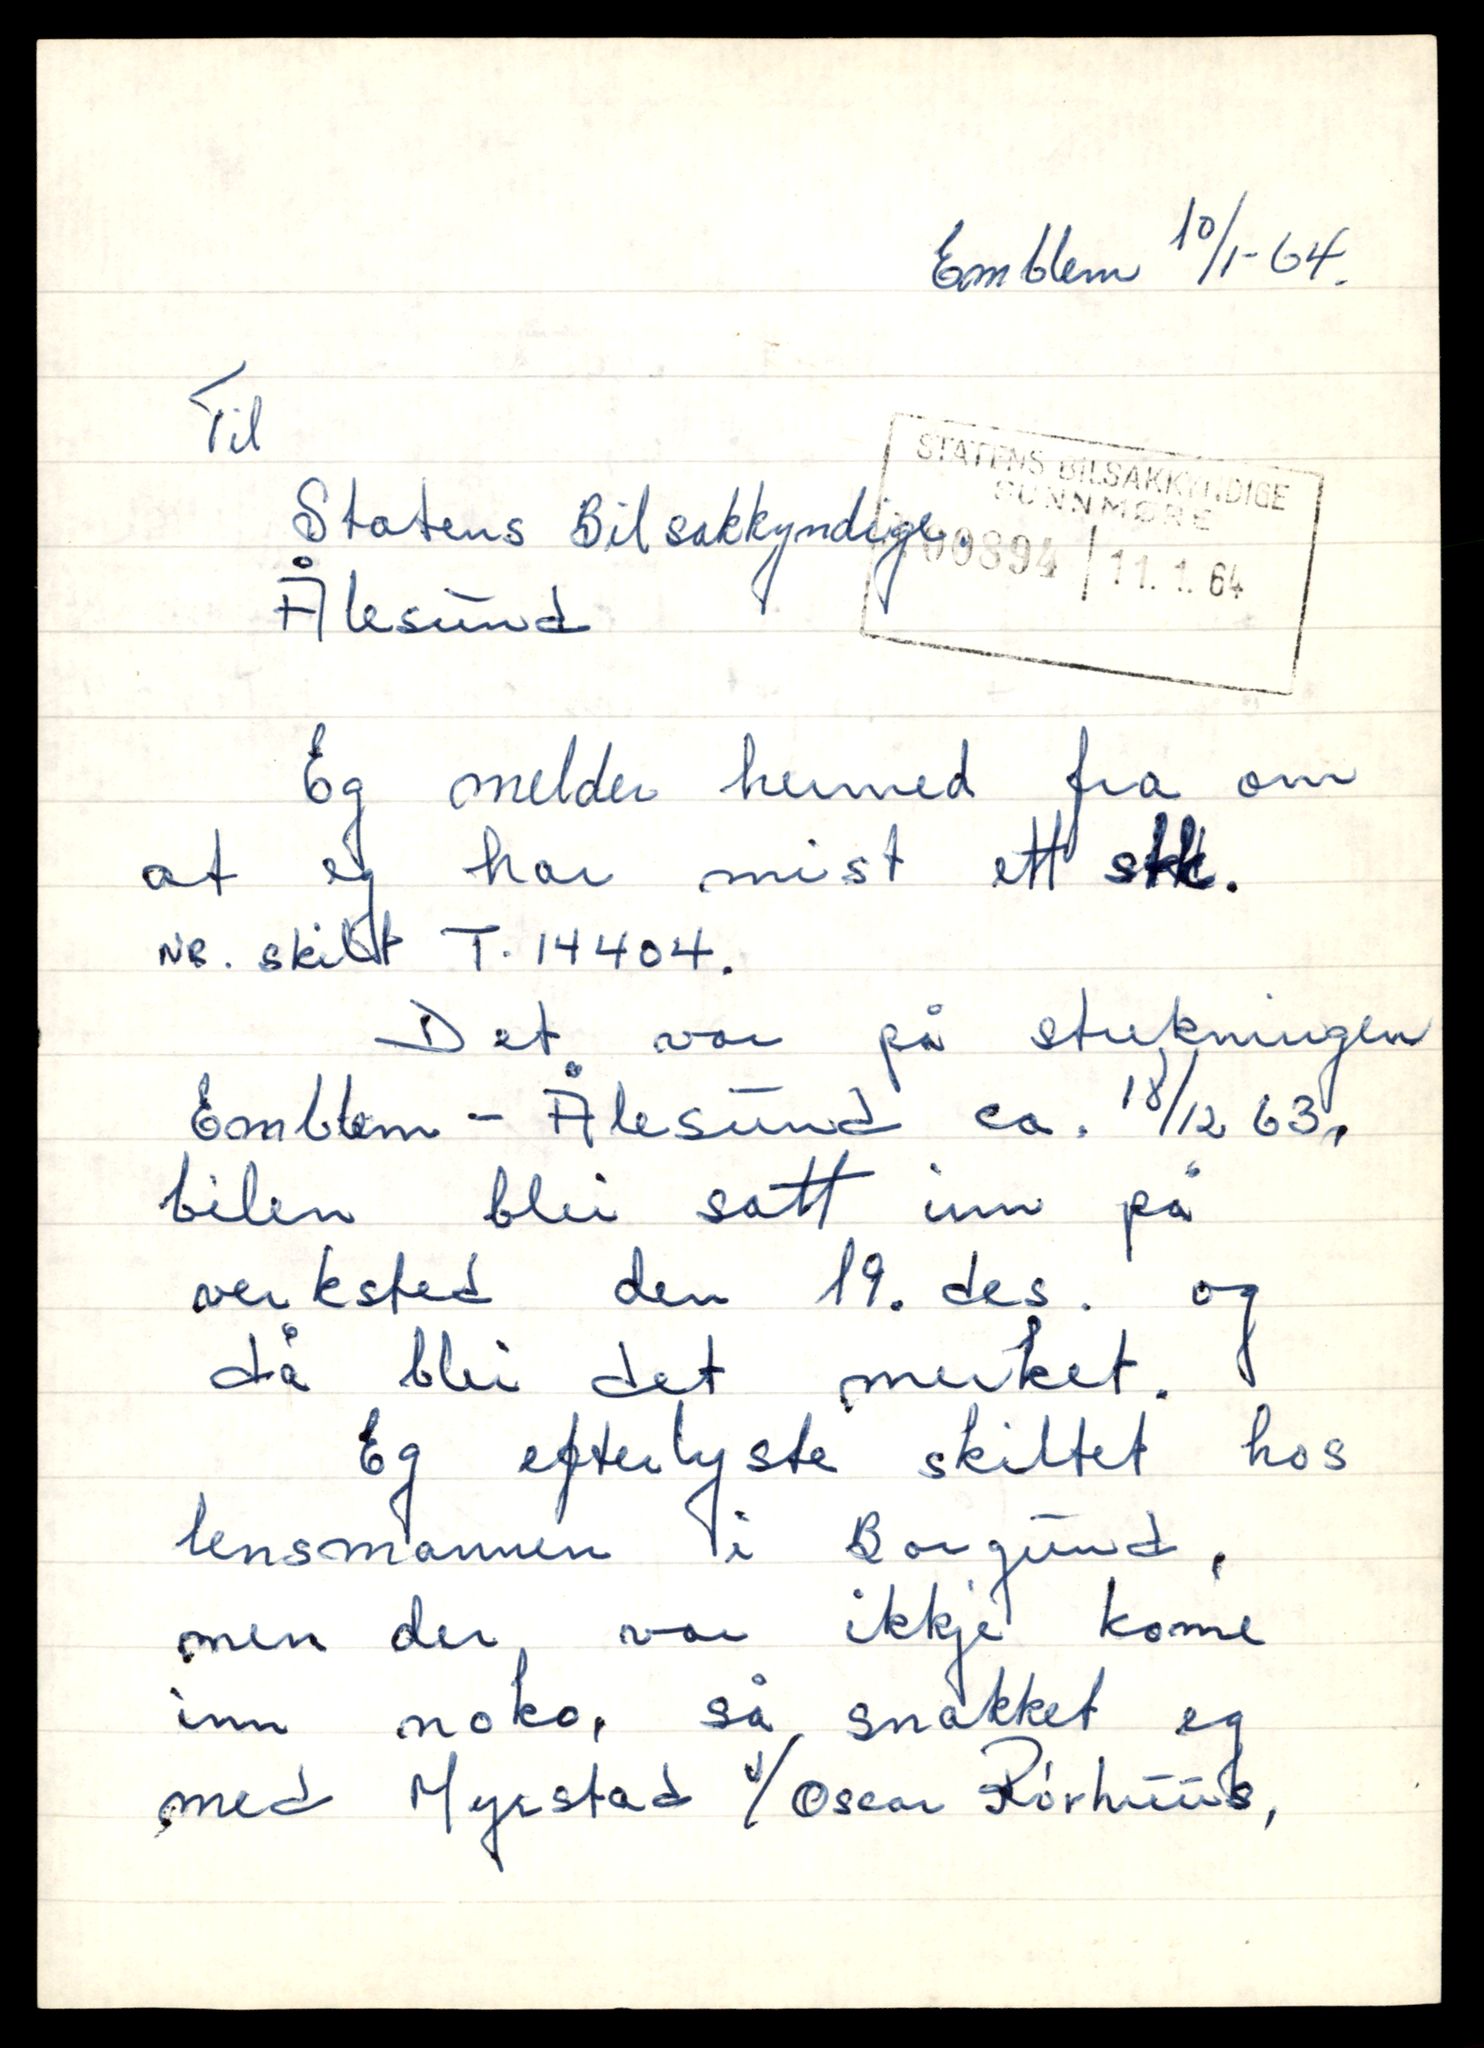 Emblem 10/1-64.
Til
STATENS BILSAKKYNDIGE
SUNNMØRE
Statens Bilsakkyndige.
00894 11.1.64
Ålesund
Eg melder hermed fra om
at eg har mist ett stk.
NR. skilt T. 14404.
Det var på strekningen
Emblem - Ålesund ca. 18/12 63,
bilen blei satt inn på
verksted den 19. des. og
då blei det merket.
Eg efterlyste skiltet hos
lensmannen i Borgund,
men der var ikkje kome
inn noko, så snakket eg
med Myrstad v/Oscar Rörhuus,